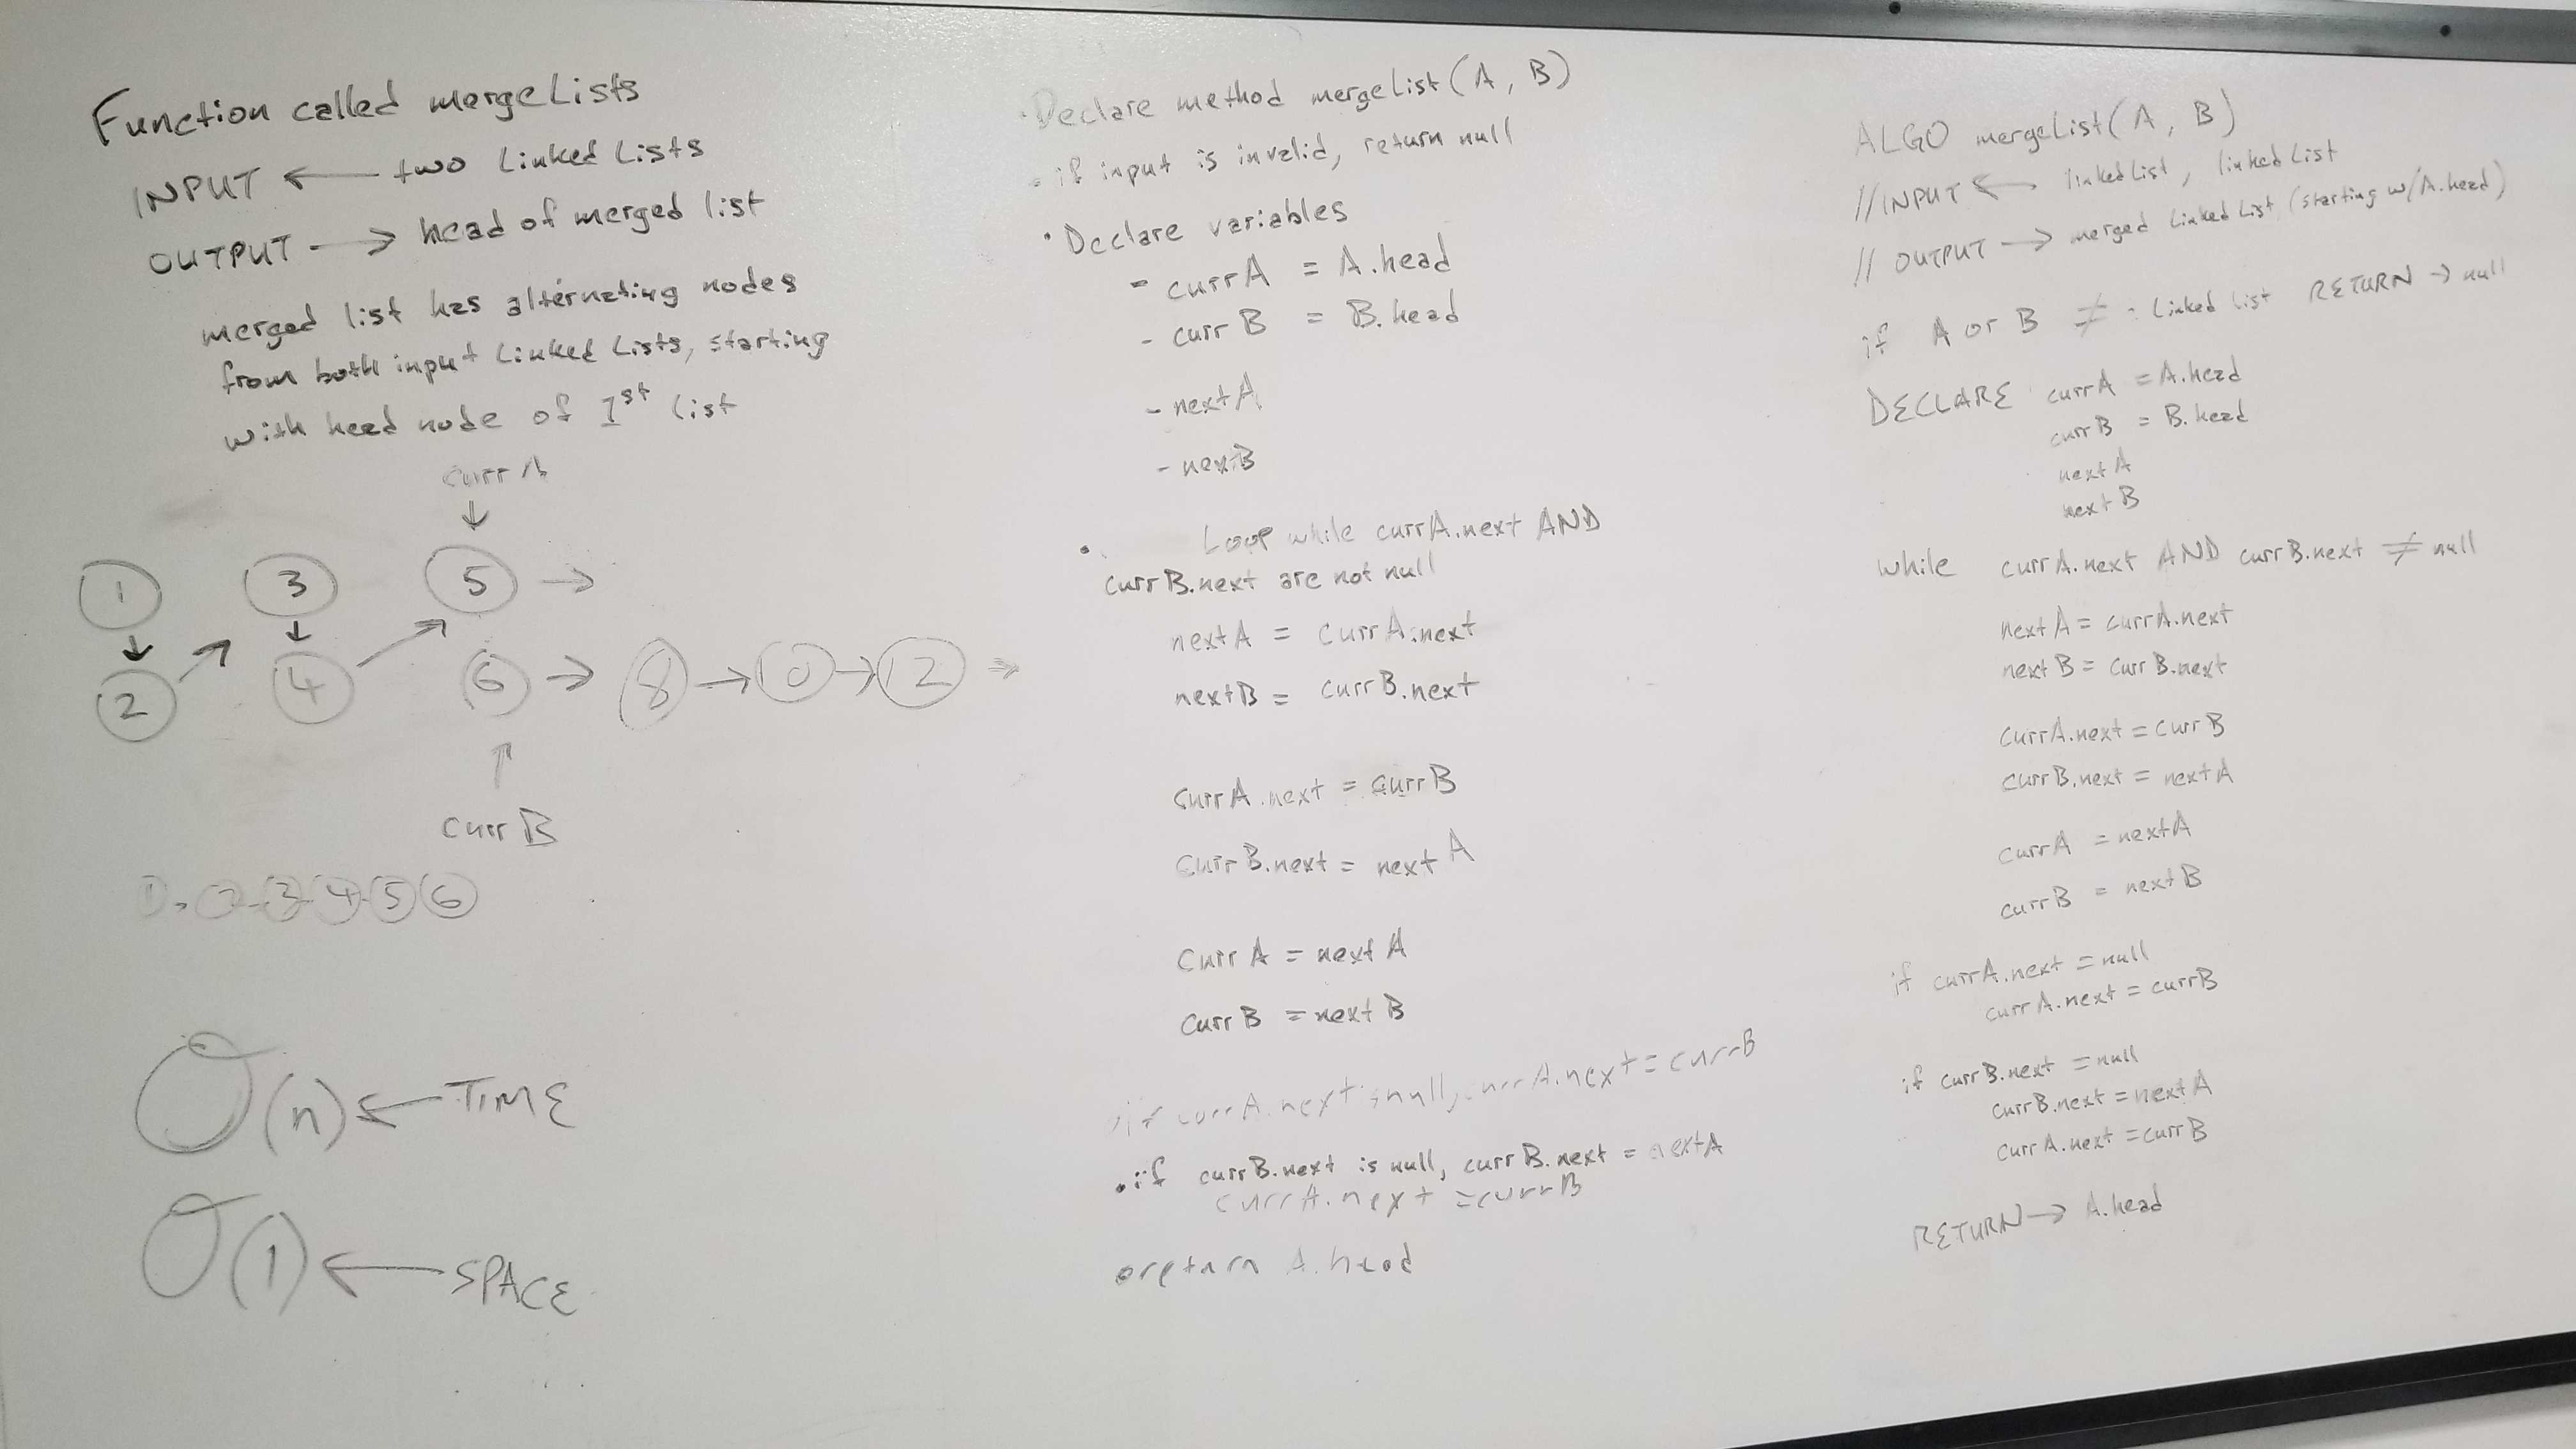 Function called mergeLists
INPUT ← two Linked Lists
OUTPUT → head of merged list
merged list has alternating nodes
from both input Linked Lists, starting
with head node of 1st list
curr A
↓
1 3 5 →
↓ ↗ ↓ ↗
2 4 6 → 8 → 10 → 12 →
↑
curr B
1 → 2 - 3 - 4 - 5 6
O(n) ← TIME
O(1) ← SPACE
• Declare method mergeList(A, B)
• if input is invalid, return null
• Declare variables
- currA = A.head
- curr B = B.head
- nextA
- nextB
• Loop while currA.next AND
currB.next are not null
nextA = currA.next
nextB = currB.next
currA.next = currB
currB.next = next A
Curr A = next A
Curr B = next B
• if currA.next is null, currA.next = currB
• if currB.next is null, currB.next = nextA
currA.next = currB
• return A.head
ALGO mergeList(A, B)
//INPUT ← linkedList, linkedList
// OUTPUT → merged LinkedList (starting w/A.head)
if A or B ≠ Linked List RETURN → null
DECLARE currA = A.head
currB = B.head
nextA
nextB
while currA.next AND currB.next ≠ null
nextA = currA.next
nextB = currB.next
currA.next = currB
currB.next = nextA
currA = nextA
currB = nextB
if currA.next = null
currA.next = currB
if currB.next = null
currB.next = nextA
currA.next = currB
RETURN → A.head